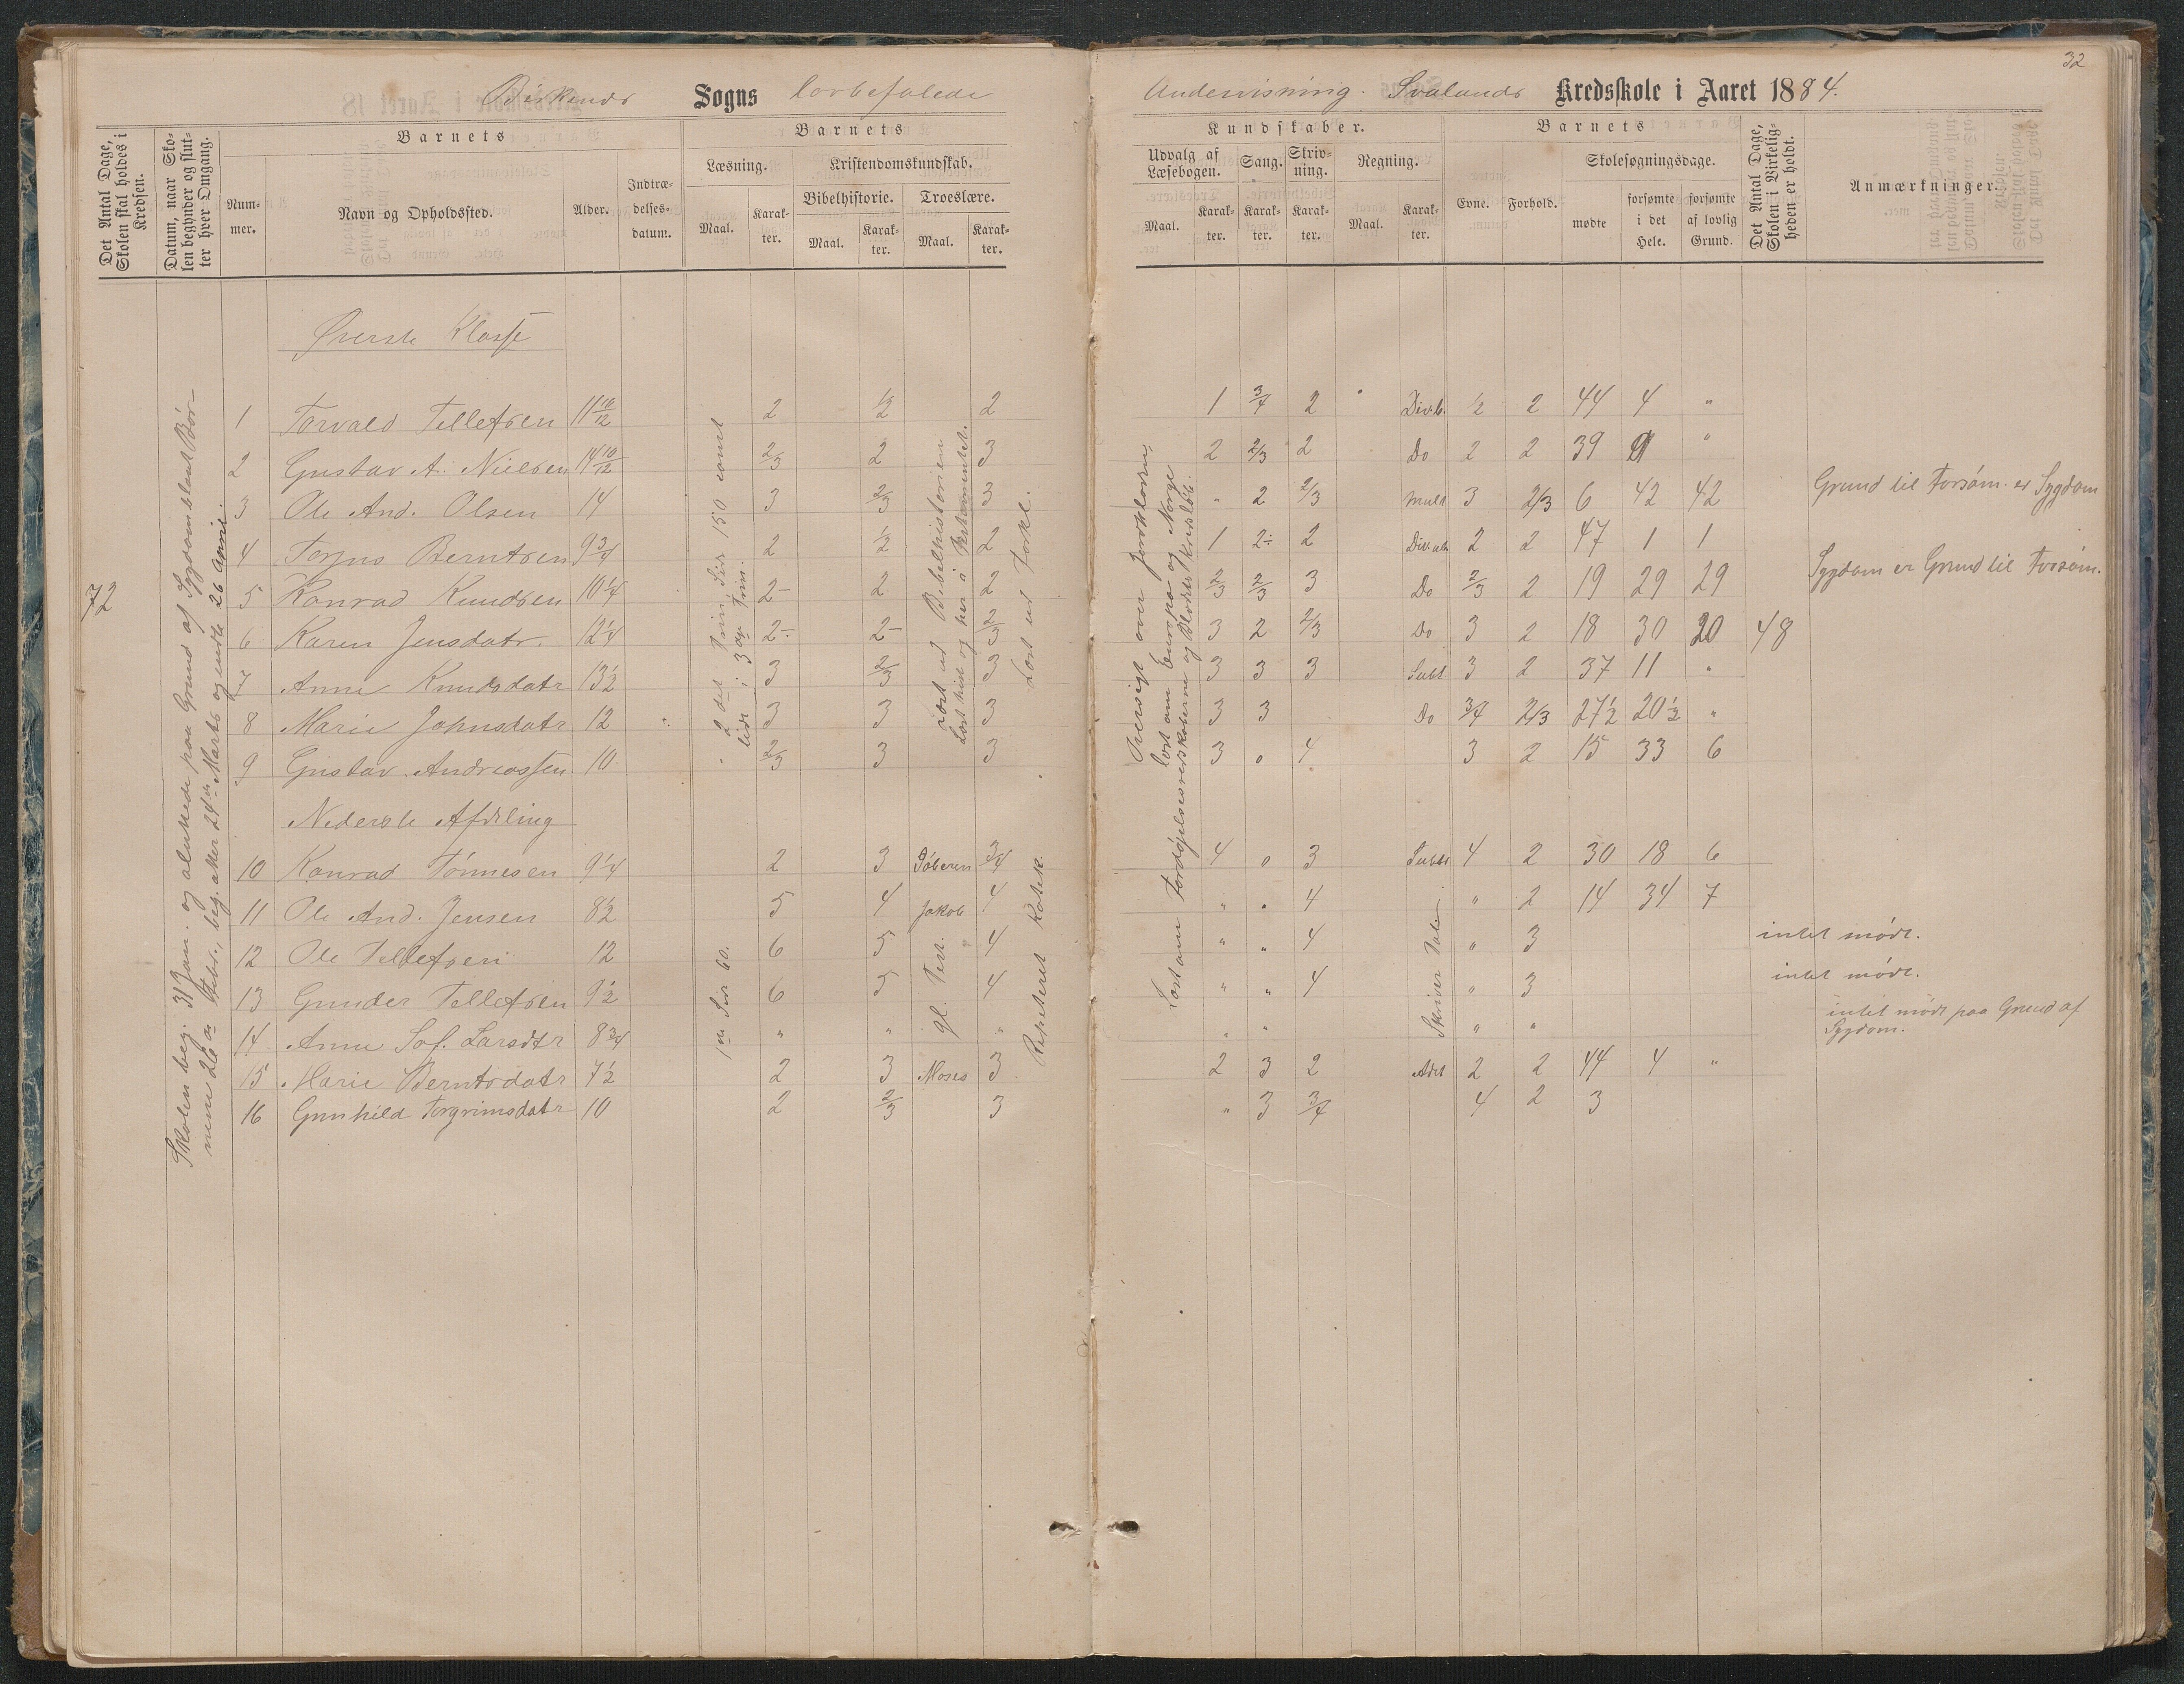 32
Birkends Sogns lovbefalede Undervisning. Svalands Kredsskole i Aaret 1884.
Det Antal Dage, Skolen skal holdes i Kredsen.
Datum, naar Skolen begynder og slutter hver Omgang.
Barnets
Nummer.
Navn og Opholdssted.
Alder.
Indtrædelsesdatum.
Barnets
Læsning.
Maal.
Karakter.
Kristendomskundskab.
Bibelhistorie.
Maal.
Karakter.
Troeslære.
Maal.
Karakter.
Kundskaber.
Udvalg af Læsebogen.
Maal.
Karakter.
Sang.
Karakter.
Skrivning.
Karakter.
Regning.
Maal.
Karakter.
Barnets
Evne.
Forhold.
Skolesøgningsdage.
mødte
forsømte i det Hele.
forsømte af lovlig Grund.
Det Antal Dage, Skolen i Virkeligheden er holdt.
Anmærkninger.
72
Skolen beg. 31 Jan. og sluttede paa Grund af Sygdom blandt Bør-
nene 26de Febr., beg. atter 24de Marts og endte 26 April.
Øverste Klasse
1 Torvald Tellefsen 11 10/12 2 1/2 2 1 3/4 2 Div. b. 1/2 2 44 4 "
2 Gustav A. Nielsen 14 10/12 2/3 2 3 2 2/3 2 Do 2 2 39 9 "
3 Ole And. Olsen 14 3 2/3 3 " 2 2/3 Mult 3 2/3 6 42 42 Grund til Forsøm. er Sygdom
4 Torjus Berntsen 9 3/4 2 1/2 2 1 2÷ 2 Div. ub 2 2 47 1 1
5 Konrad Knudsen 10 1/4 2- 2 2 2/3 2/3 3 Do 2/3 2 19 29 29 Sygdom er Grund til Forsøm.
6 Karen Jensdatr. 12 1/4 2÷ 2- 2/3 3 2 2/3 Do 3 2 18 30 20 48
7 Anne Knudsdatr 13 1/2 3 2/3 3 3 3 3 Subt 3 2 37 11 "
8 Marie Johnsdatr 12 3 3 3 3 3 Do 3/4 2/3 27 1/2 20 1/2 "
9 Gustav Andreassen 10 2/3 3 3 3 0 4 3 2 15 33 6
2det Trin Sid 150 samt
lidt i 3die Trin.
Læst ud Bibelhistorien
Læst hist og her i N. Testamentet.
Læst ud Forkl.
Oversigt over Jordkloden,
læst om Europa og Norge
Læst om Fordøjelsesredskaberne og Blodets Kredsløb.
Nederste Afdeling
10 Konrad Tønnesen 9 1/4 2 3 Døberen 3/4 4 0 3 Subt 4 2 30 18 6
11 Ole And. Jensen 8 1/2 5 4 Jakob 4 " " 4 " 2 14 34 7
12 Ole Tellefsen 12 6 5 4 " " 4 " 3 intet mødt.
13 Gunder Tellefsen 9 1/2 6 5 4 " " 4 " 3 intet mødt.
14 Anne Sof. Larsdtr 8 3/4 " " " " " " " intet mødt paa Grund af Sygdom.
15 Marie Berntsdatr 7 1/2 2 3 Moses 3 2 3 2 Adit 2 2 44 4 "
16 Gunhild Torgrimsdatr 10 2 2/3 3 " 3 3/4 4 2 3
1ste Sid 60.
gl. Test.
Repeteret Katek.
Skriver Tal